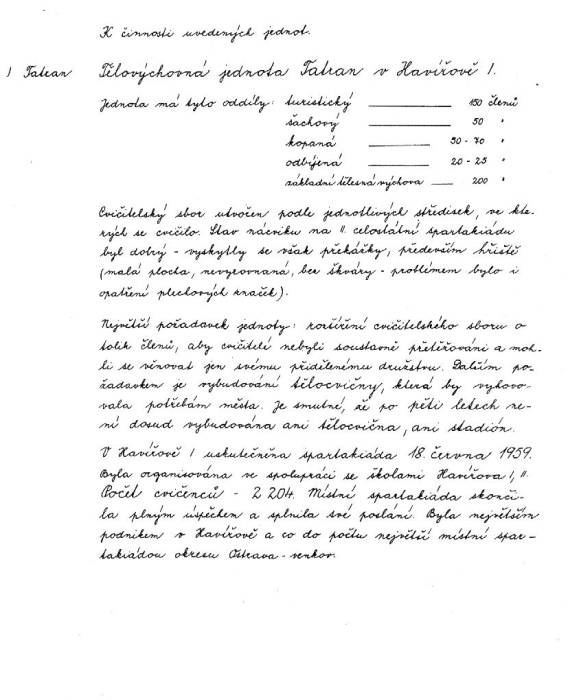 K činnosti uvedených jednot.
1 Tatran Tělovýchovná jednota Tatran v Havířově 1.
Jednota má tyto oddíly: turistický 150 členů
šachový 50 "
kopaná 50-70 "
odbíjená 20-25 "
základní tělesná výchova 200 "
Cvičitelský sbor utvořen podle jednotlivých středisek, ve kte-
rých se cvičilo. Stav nácviku na II. celostátní spartakiádu
byl dobrý - vyskytly se však překážky, především hřiště
(malá plocha, nevyrovnaná, bez škváry - problémem bylo i
opatření plechových značek).
Největší požadavek jednoty: rozšíření cvičitelského sboru o
tolik členů, aby cvičitelé nebyli soustavně přetěžováni a moh-
li se věnovat jen svému přidělenému družstvu. Dalším po-
žadavkem je vybudování tělocvičny, která by vyhovo-
vala potřebám města. Je smutné, že po pěti letech ne-
ní dosud vybudována ani tělocvična, ani stadión.
V Havířově 1 uskutečněna spartakiáda 18. června 1959.
Byla organisována ve spolupráci se školami Havířova 1, II.
Počet cvičenců - 2 204. Místní spartakiáda skonči-
la plným úspěchem a splnila své poslání. Byla největším
podnikem v Havířově a co do počtu největší místní spar-
takiádou okresu Ostrava-venkov.